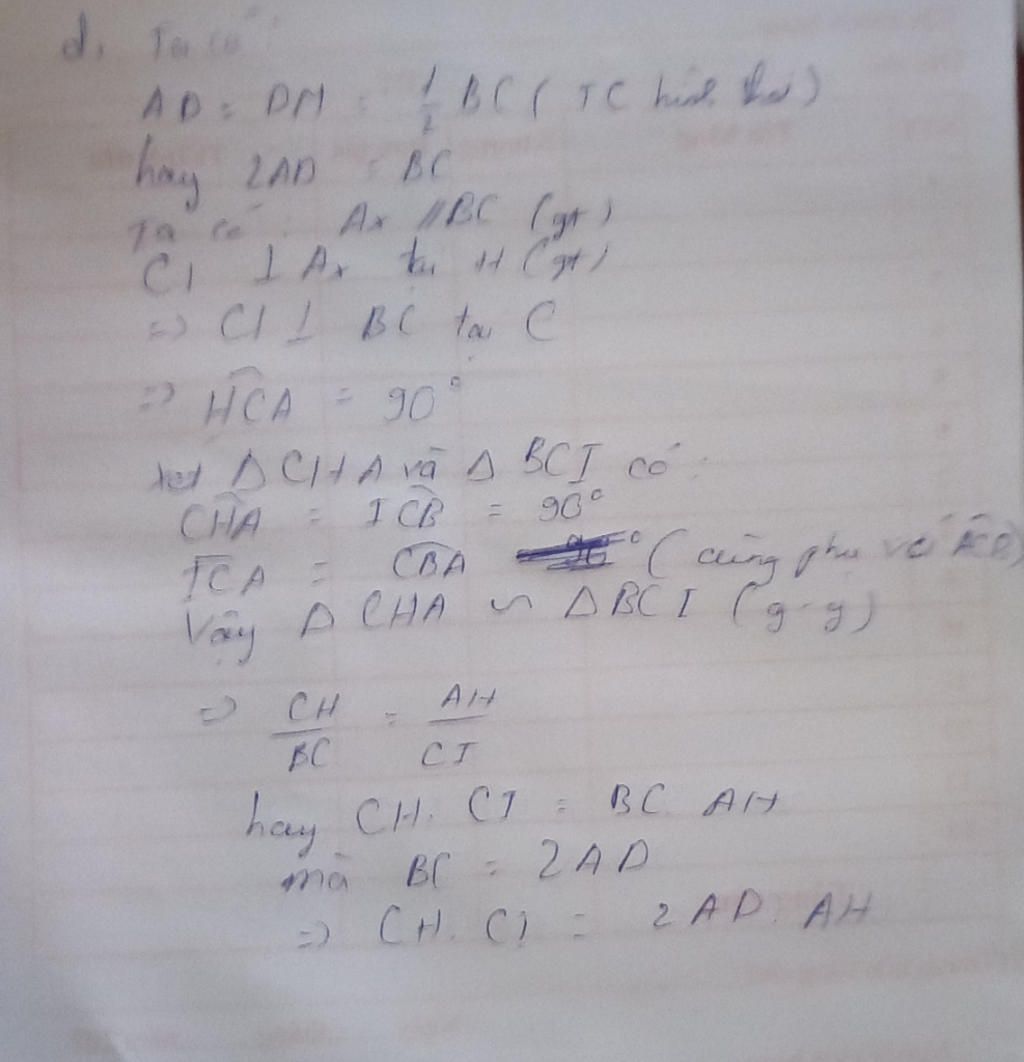 d, Ta có:
AD = DM = 1/2 BC ( TC hình thoi )
hay 2AD = BC
Ta có: Ax // BC (gt)
CI ⊥ Ax tại H (gt)
=> CI ⊥ BC tại C
=> \widehat{HCA} = 90°
xét Δ CHA và Δ BCI có:
\widehat{CHA} = \widehat{ICB} = 90°
\widehat{ICA} = \widehat{CBA} ( cùng phụ với
Vậy Δ CHA ∽ Δ BCI (g-g)
=> CH/BC = AH/CI
hay CH. CI = BC. AH
mà BC = 2AD
=> CH. CI = 2 AD. AH